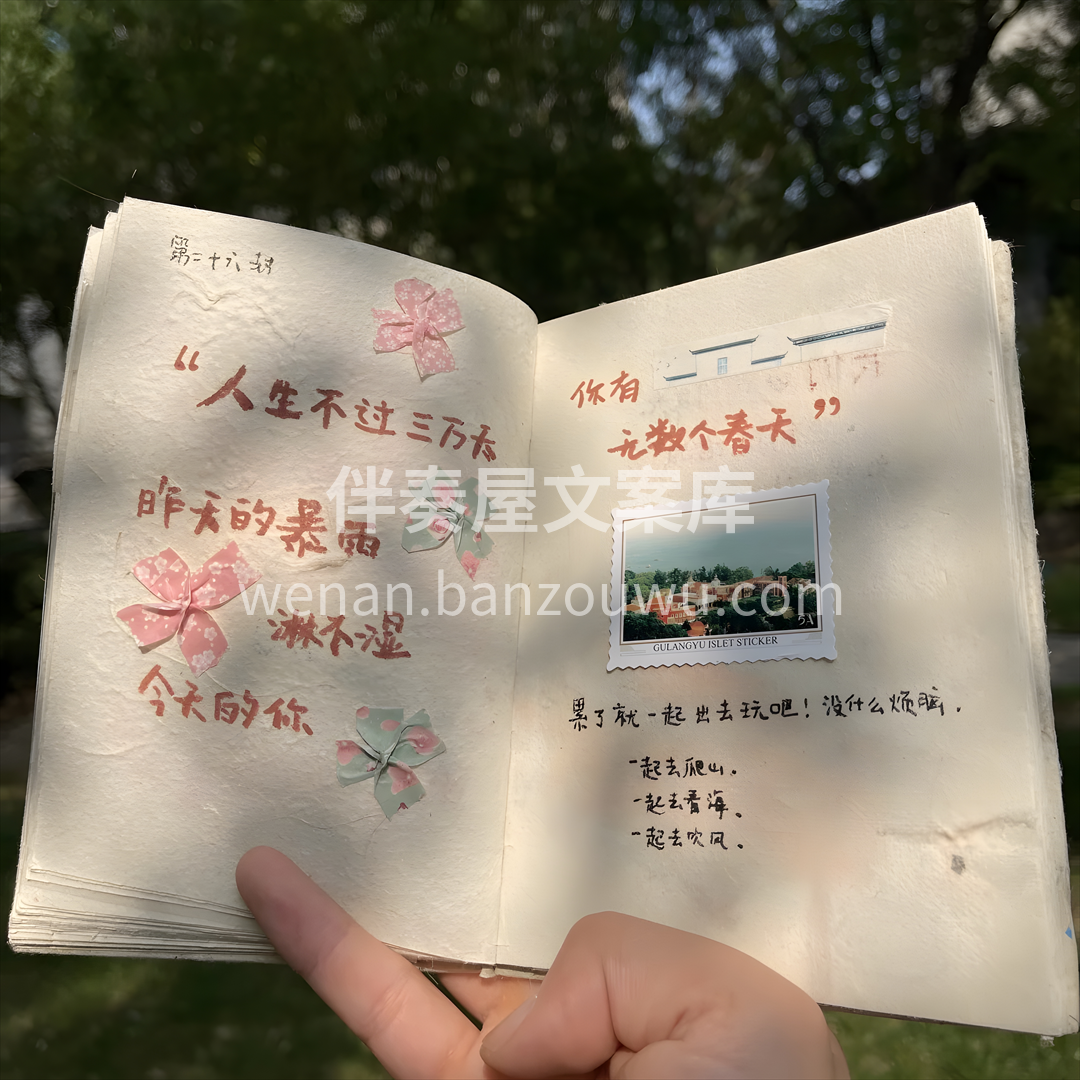 第二十六封
“人生不过三万天
昨天的暴雨
淋不湿
今天的你
你有
无数个春天”
GULANGYU ISLET STICKER
5A
累了就一起出去玩吧！没什么烦脑.
一起去爬山.
一起去看海。
一起去吹风。
伴奏屋文案库
wenan.banzouwu.com